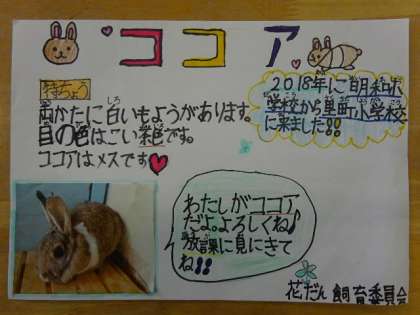 ココア
特ちょう
両かたに白いもようがあります。
目の色はこいです。
ココアはメスです♥
2018年に明和小
学校から里町小学校
に来ました!!
わたしがココア
だよ。よろしくね♪
放課に見にきて
ね!!
花だん 飼育委員会